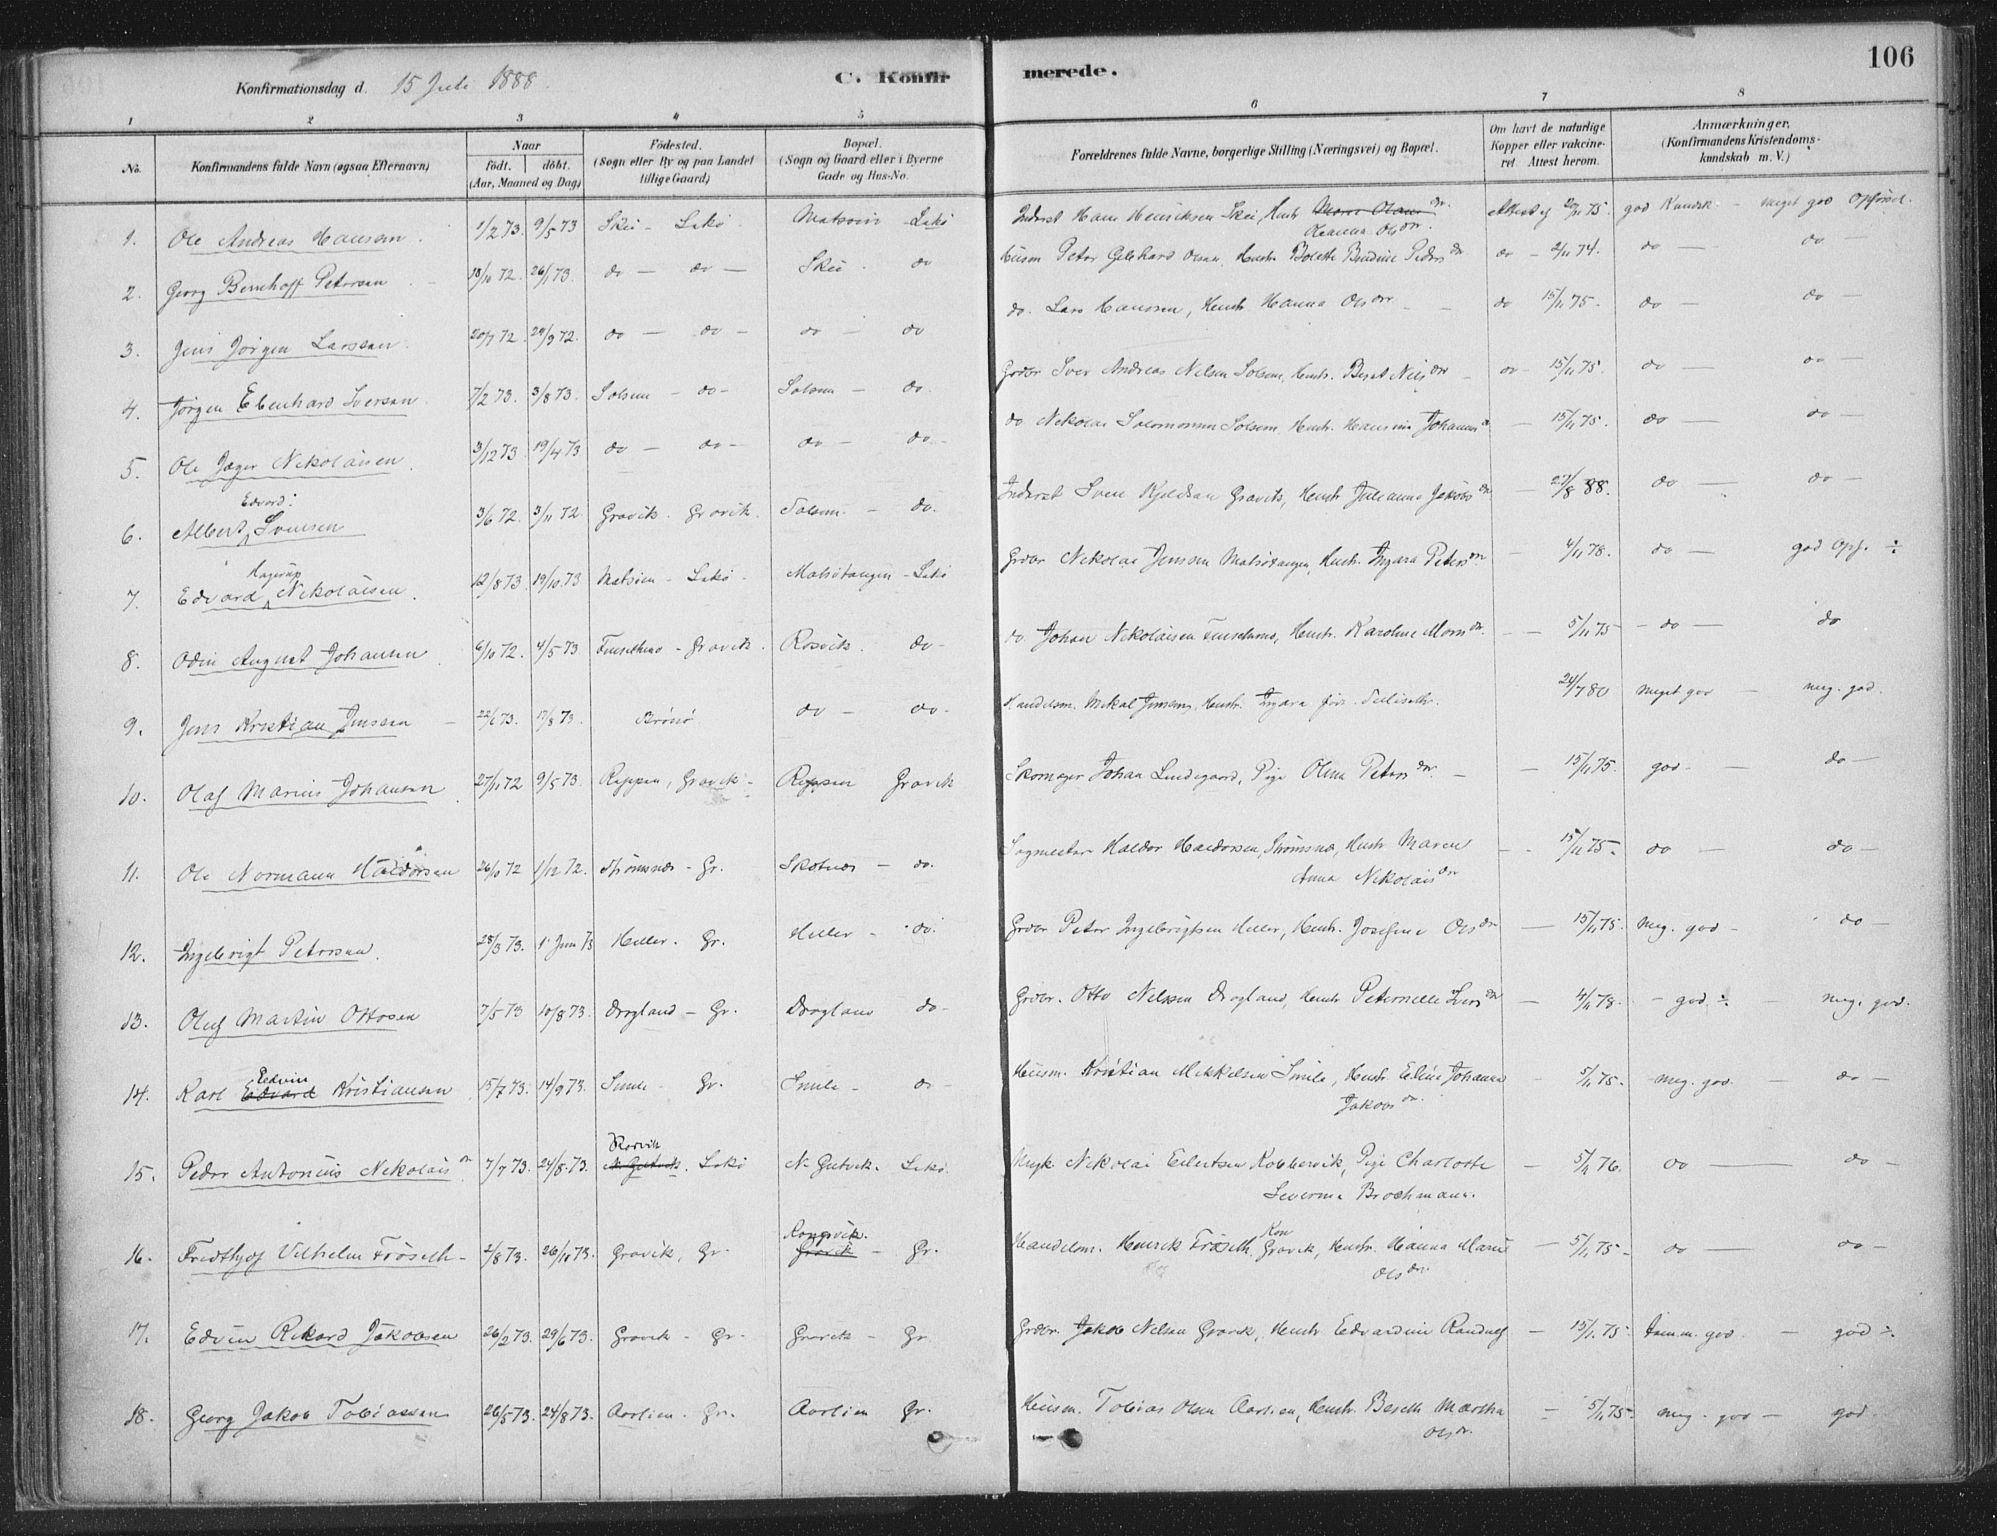 106
Konfirmationsdag d. 15 Juli 1888.
C. Konfirmerede.
1 2 3 4 5 6 7 8
No. Konfirmandens fulde Navn (ogsaa Efternavn) Naar födt. döbt. (Aar, Maaned og Dag) Födested. (Sogn eller By og paa Landet tillige Gaard) Bopæl. (Sogn og Gaard eller i Byerne Gade og Hus-No. Forældrenes fulde Navne, borgerlige Stilling (Næringsvei) og Bopæl. Om havt de naturlige Kopper eller vakcineret. Attest herom. Anmærkninger. (Konfirmandens Kristendomskundskab m. V.)
1. Ole Andreas Hansen 1/2 73. 9/5 73 Skei - Lekö Matsoin - Lekö Inderst Hans Henriksen Skei, Hustr. Hanna Olsdr. Attest af 20/11 75. god Kundsk. - meget god Opförsel.
2. Georg Bernhoff Petersen 18/11 72. 26/1 73. do - do - Skei do Husm. Peter Gebhard Olsen, Hustr. Bolette Bendine Pedersdr. do - 2/11 74. do - do -
3. Jens Jörgen Larssen 20/7 72. 29/9 72. do - do - do - do do. Lars Hanssen, Hustr. Hanna Olsdr - do 15/11 75. do - do -
4. Jörgen Ebenhard Iversen 7/2 73. 3/8 73. Solsem - do - Solsem - do. Grdbr Iver Andreas Nelsen Solsem, Hustr. Beret Nilsdr - do - 15/11 75. do - do -
5. Ole Jæger Nikolaisen 3/12 73 19/4 73 do - do - do - do - do Nikolai Salomonsen Solsem Hustr. Hansine Johannsdr - 15/11 75. do - do -
6. Albert Edvard Svensen 3/6 72. 3/11 72. Gravik. Gravik. Solsem - do. Inderst Sven Kjeldsen Gravik, Hustr. Julianna Jakobsdr - 27/8 88. do - do -
7. Edvard Hagerup Nikolaisen. 12/8 73. 19/10 73 Matsoin - Lekö. Matsötangen - Lekö Grdbr Nikolai Jenssen Matsötangen, Hustr. Ingara Petersdr - 4/11 78. do - god Opf. ÷
8. Odin August Johansen 6/10 72. 4/5 73 - Gravik. Rosvik. do - do. Johan Nikolaisen, Hustr. Karoline Monsdr. - 5/11 75 - do - do
9. Jens Kristian Jenssen 22/1 73. 17/8 73. Brönö do - do - Handelsm. Mikal Jenssen, Hustr. Ingara föd. 24/7 80 meget god - meg. god.
10. Olaf Marius Johansen 27/11 72 9/5 73. Reppen, Gravik - Reppen Gravik Skomager Johan Lindegaard, Pige Olina Petersdr. - 15/11 75. god. - do -
11. Ole Normann Haldorsen 26/10 72 1/12 72. Strömsnes - Gr. Skotnes - do. Sagmester Haldor Haldorsen, Strömsnes, Hustr. Maren Anna Nikolaisdr - 15/11 75. do - do -
12. Ingebrigt Petersen. 28/3 73. 1 Juni 73 Heller. Gr. Heller - do. Grdbr Peter Ingebrigtsen Heller, Hustr. Josefine Olsdr - 15/11 75. meg. god - do -
13. Oluf Martin Ottosen 7/5 73 10/8 73. Drogland - Gr. Drogland do - Grdbr. Otto Nelssen Drogland, Hustr. Peternelle Iversdr - 4/11 78. - god ÷ - meg. god.
14. Karl Edvin Kristiansen 15/7 73. 14/9 73. Simle - Gr. Simle - do - Husm. Kristian Mikkelsen Simle, Hustr. Elina Johanna Jakobsdr. - 5/11 75. - meg. god. - do -
15. Peder Antonius Nikolaisen 7/7 73. 24/8 73. Rörvik Lekö N. Gutvik. Lekö. Nikolai Eilertsen Kobbervik, Pige Charlotte Severine Brochmann. - 5/11 76. do - do -
16. Fridthjof Vilhelm Fröseth - 2/8 73. 26/10 73. Gravik, Gr. Gravik - Gr. Handelsm. Henrik Fröseth, Gravik, Hustr. Hanna Marie Olsdr. - 5/11 75 - do - do -
17. Edvin Rikard Jakobsen 26/2 73. 29/6 73. Gravik - Gr - Gravik - Gr. Grdbr. Jakob Nelsen Gravik, Hustr Edvardine Randulf - 15/11 75. temm. god. - god ÷.
18. Georg Jakob Tobiassen 26/5 73. 24/8 73. Aarlien. Gr. Aarlien Gr. Husm. Tobias Olsen Aarlien, Hustr. Bereth Martha Olsdr. - 5/11 75. meg. god - god.